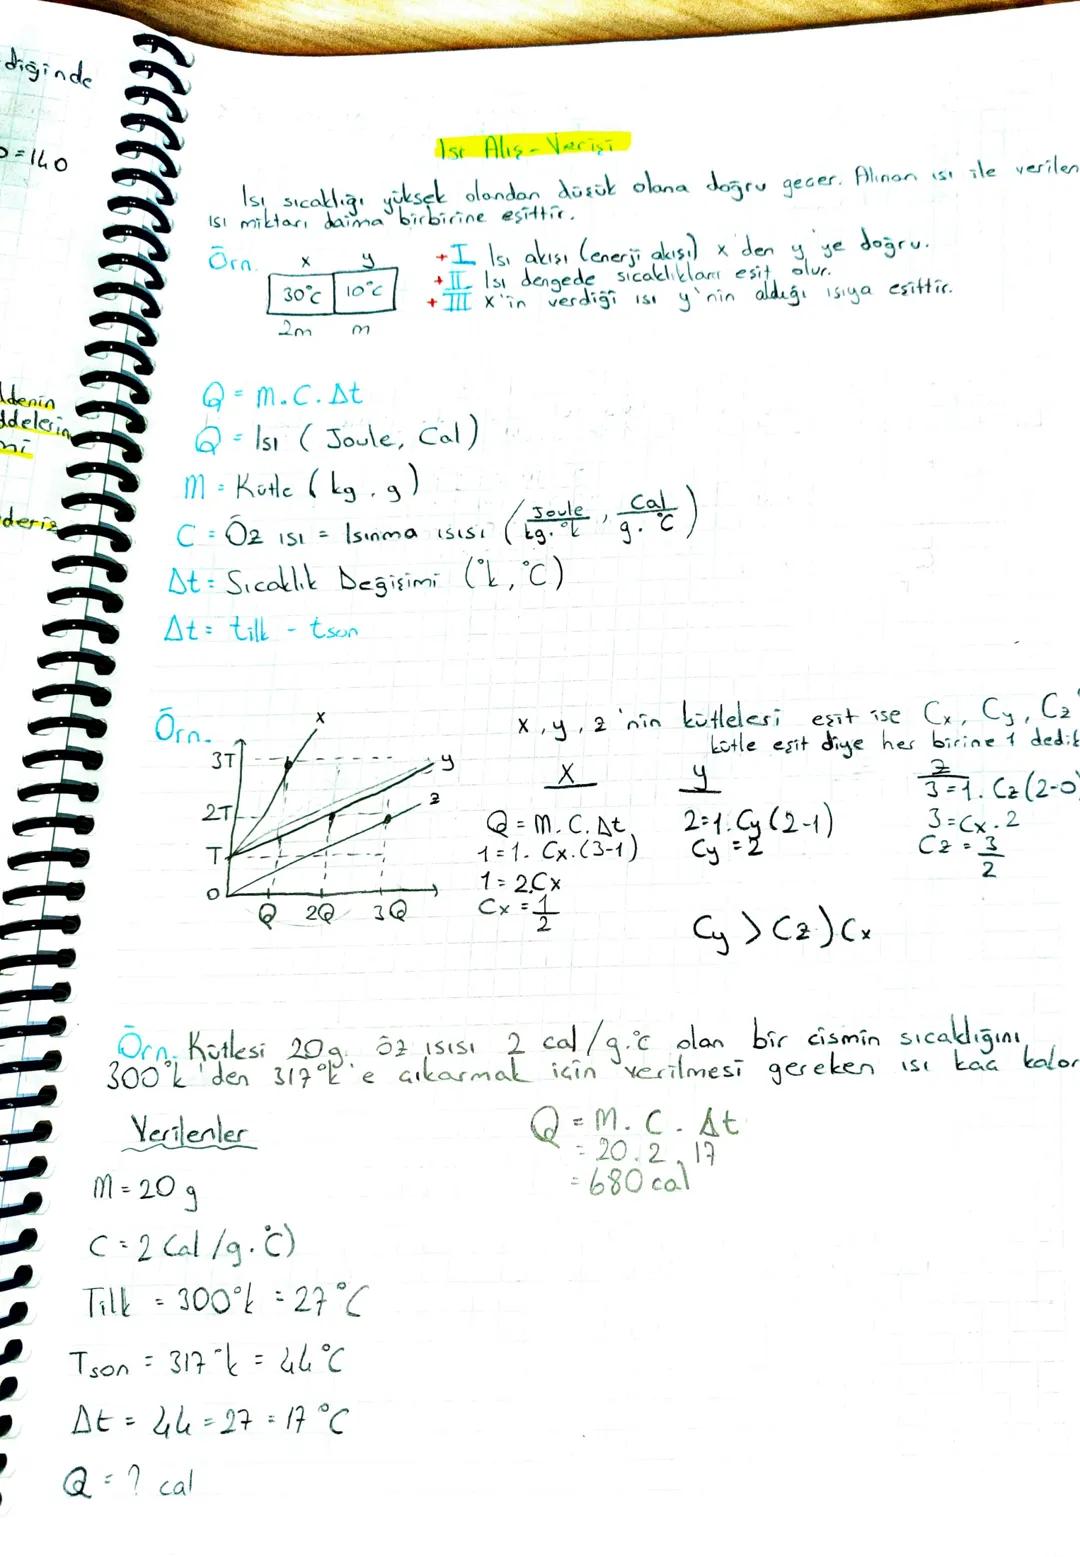 diğinde
=140
ddenin
ddelerin
mi
deriz
Isı Alış-Verişi
Isı sıcaklığı yüksek olandan düşük olana doğru geçer. Alınan ısı ile verilen
ısı miktarı daima birbirine eşittir.
Örn.
x y
30°c 10°c
2m m
+ I Isı akışı (enerji akışı) x'den y'ye doğru.
+ II Isı dengede sıcaklıkları eşit olur.
+ III x'in verdiği ısı y'nin aldığı ısıya eşittir.
Q = m.C.Δt
Q = Isı (Joule, Cal)
m = Kütle (kg, g)
C = Öz ısı = Isınma ısısı (Joule/kg.°k, Cal/g.°C)
Δt = Sıcaklık Değişimi (°k, °C)
Δt = tilk - tson
Örn.
x
3T
y
2T
z
T
0
Q 2Q 3Q
x, y, z'nin kütleleri eşit ise Cx, Cy, Cz
kütle eşit diye her birine 1 dedik
x
Q = m.C.Δt
1=1.Cx.(3-1)
1=2.Cx
Cx=1/2
y
2=1.Cy(2-1)
Cy=2
z
3=1.Cz(2-0)
3=Cx.2
Cz=3/2
Cy > Cz > Cx
Örn. Kütlesi 20g. öz ısısı 2 cal/g.°c olan bir cismin sıcaklığını
300°k'den 317°k'e çıkarmak için verilmesi gereken ısı kaç kalor
Verilenler
m=20 g
C=2 Cal/g.°C)
Tilk = 300°k = 27°C
Tson = 317°k = 44°C
Δt = 44 = 27 = 17°C
Q = ? cal
Q = m.C.Δt
= 20.2.17
= 680 cal